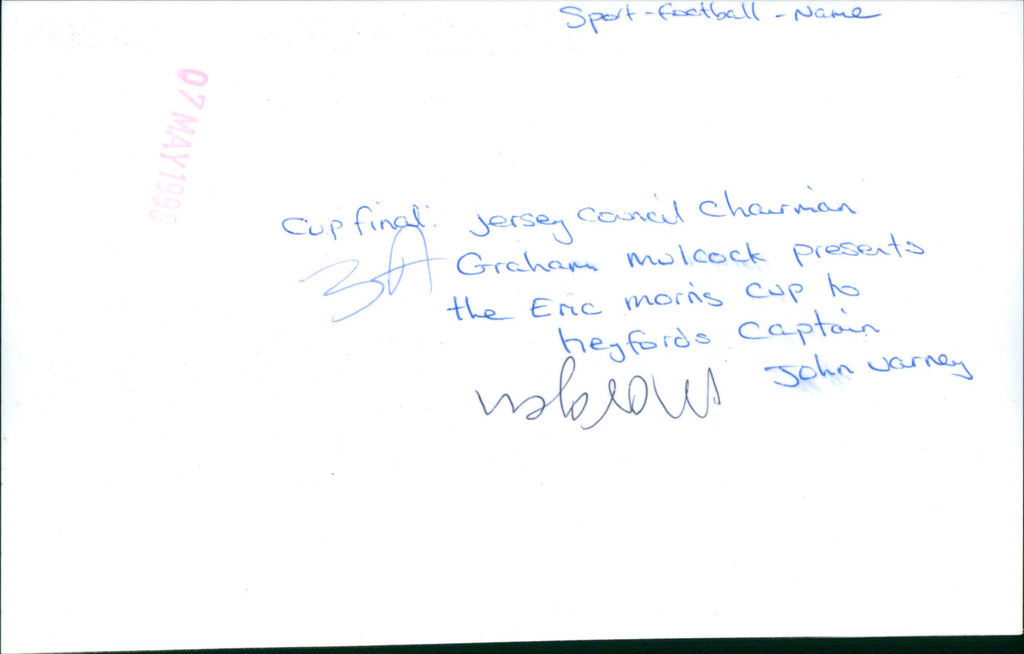 Sport - Football - Name
07 MAY 199
Cup final: Jersey Council Chairman
3A
Graham Mulcock presents
the Eric Morris Cup to
Heyfords Captain
John Varney